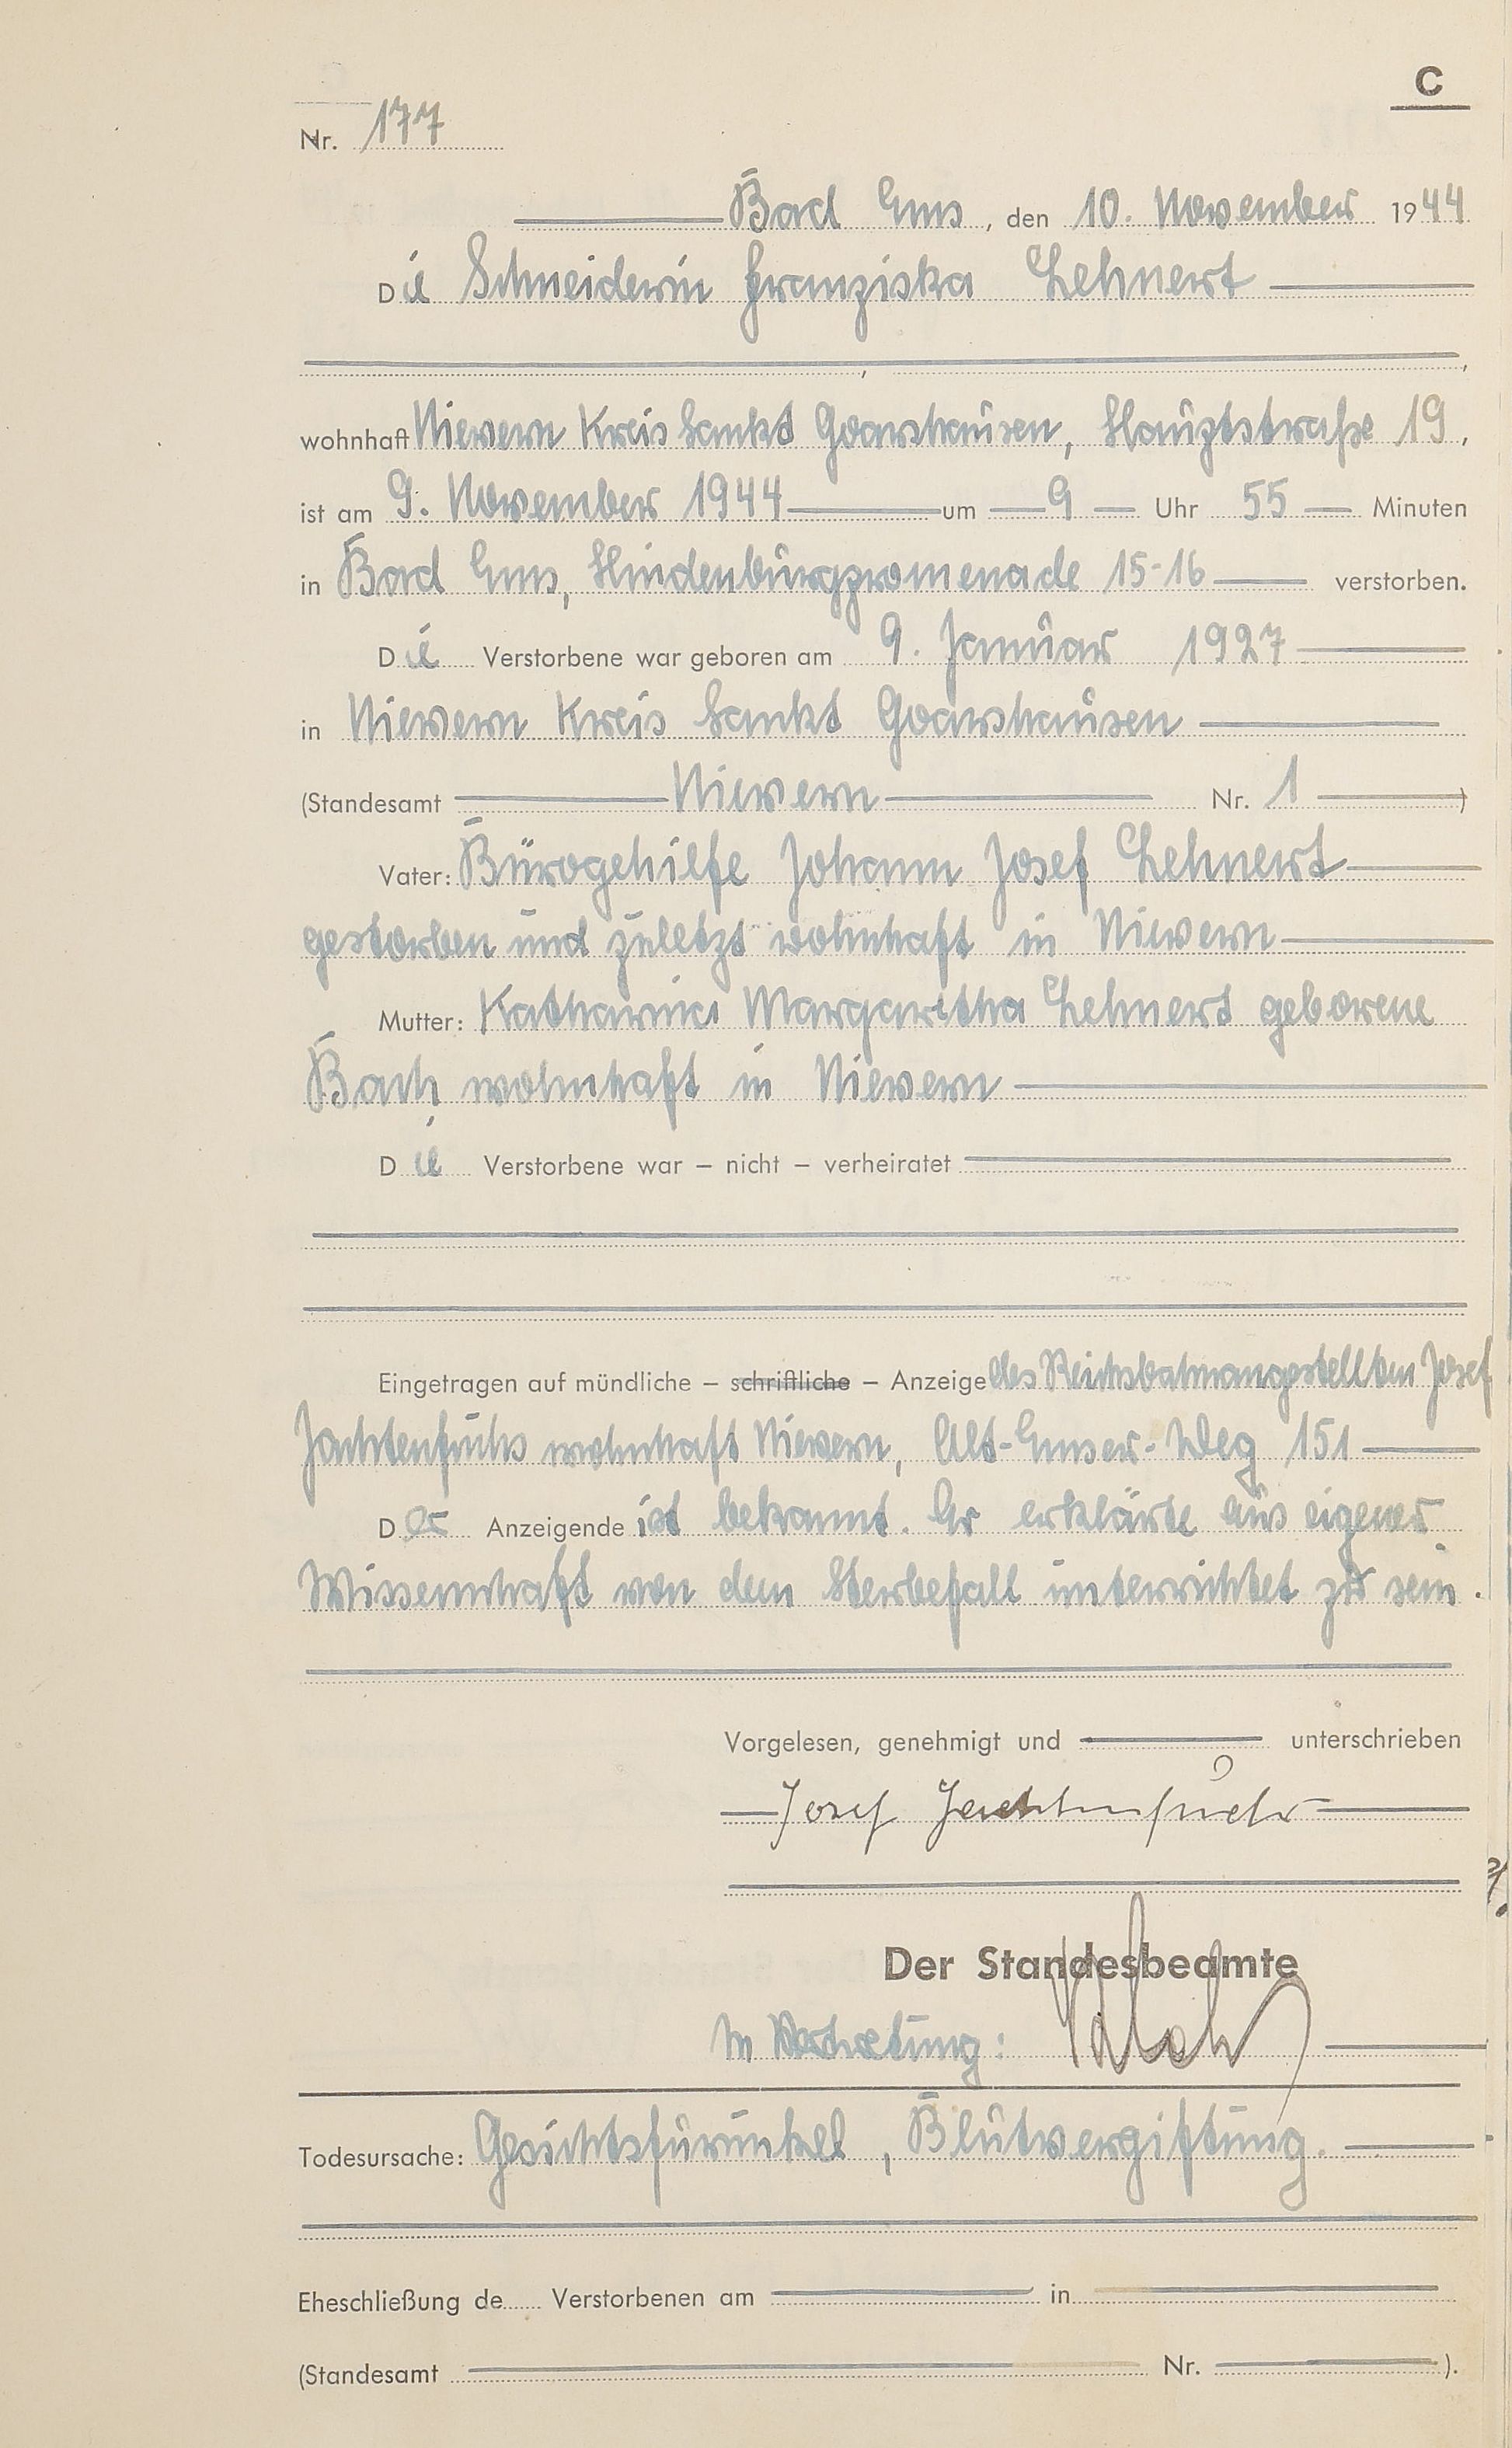 C
Nr. 177
Bad Ems, den 10. November 1944
Die Schneiderin Franziska Lehnert
wohnhaft Nievern Kreis Sankt Goarshausen, Hauptstraße 19,
ist am 9. November 1944 um 9 Uhr 55 Minuten
in Bad Ems, Hindenburgpromenade 15-16 verstorben.
Die Verstorbene war geboren am 9. Januar 1927
in Nievern Kreis Sankt Goarshausen
(Standesamt Nievern Nr. 1)
Vater: Bürogehilfe Johann Josef Lehnert
gestorben und zuletzt wohnhaft in Nievern
Mutter: Katharina Margaretha Lehnert geborene
Bach, wohnhaft in Nievern
Die Verstorbene war – nicht – verheiratet
Eingetragen auf mündliche – schriftliche – Anzeige des Reichsbahnangestellten Josef
Jachtenfuchs wohnhaft Nievern, Alt-Emser-Weg 151
Der Anzeigende ist bekannt. Er erklärte aus eigener
Wissenschaft von dem Sterbefall unterrichtet zu sein.
Vorgelesen, genehmigt und unterschrieben
Josef Jachtenfuchs
Der Standesbeamte
In Vertretung:
Todesursache: Gesichtsfurunkel, Blutvergiftung.
Eheschließung de Verstorbenen am in
(Standesamt Nr. ).